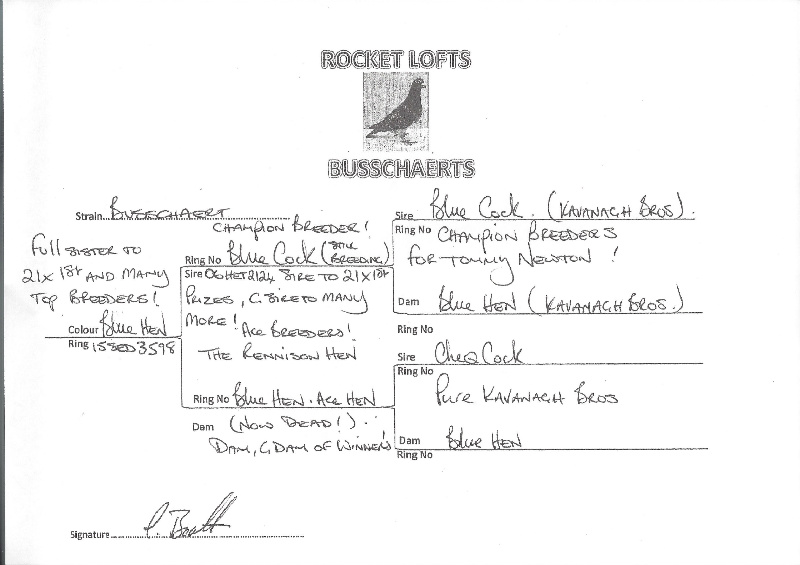 ROCKET LOFTS
BUSSCHAERTS
Strain...BUSSCHAERT
FULL SISTER TO
21X 1ST AND MANY
TOP BREEDERS!
Colour Blue HEN
Ring 15SED3598
CHAMPION BREEDER!
Ring No Blue Cock (STILL BREEDING)
Sire 06HET2124 SIRE TO 21X1ST
PRIZES, G. SIRE TO MANY
MORE! ACE BREEDERS!
THE RENNISON HEN
Ring No Blue HEN. ACE HEN
Dam (NOW DEAD!).
DAM, G DAM OF WINNERS!
Sire Blue Cock. (KAVANAGH BROS).
Ring No CHAMPION BREEDERS
FOR TOMMY NEWTON!
Dam Blue HEN (KAVANAGH BROS.)
Ring No
Sire Cheq Cock
Ring No
Pure KAVANAGH BROS
Dam Blue HEN
Ring No
Signature